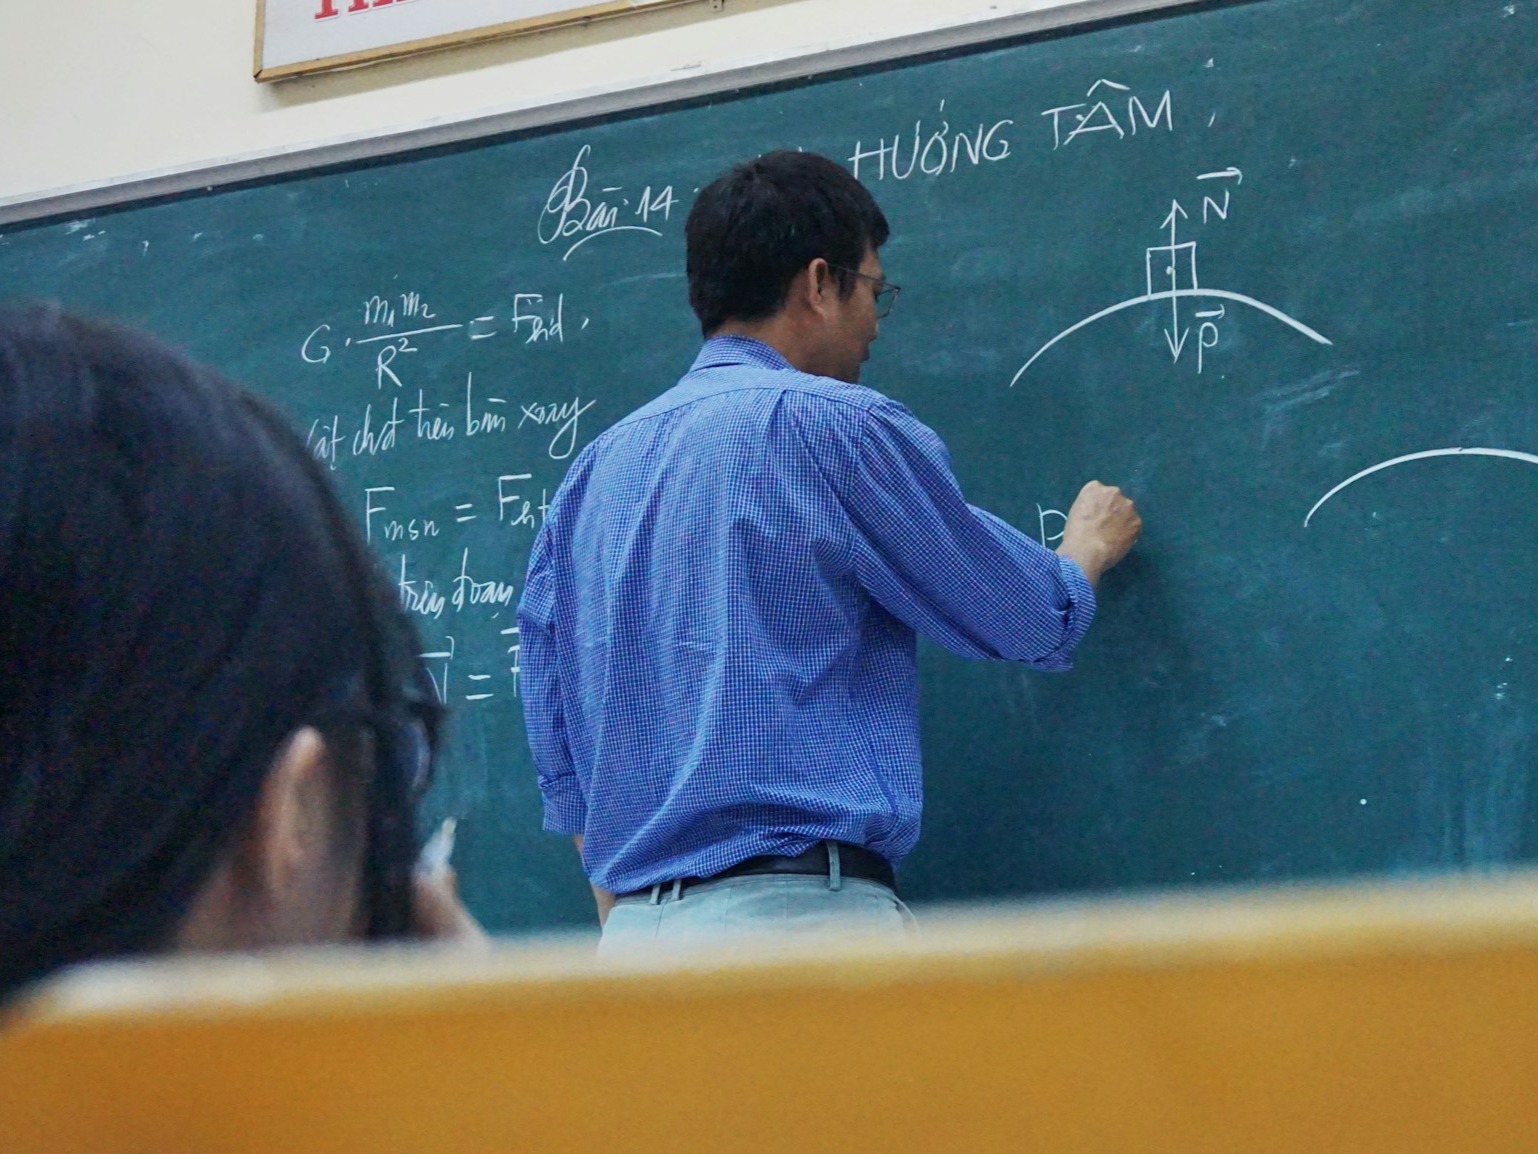 Bài 14: HƯỚNG TÂM
G. m₁m₂/R² = Fhd
N
P
vật chất trên bàn xoay
Fmsn = Fht
P
trên đoạn
N =